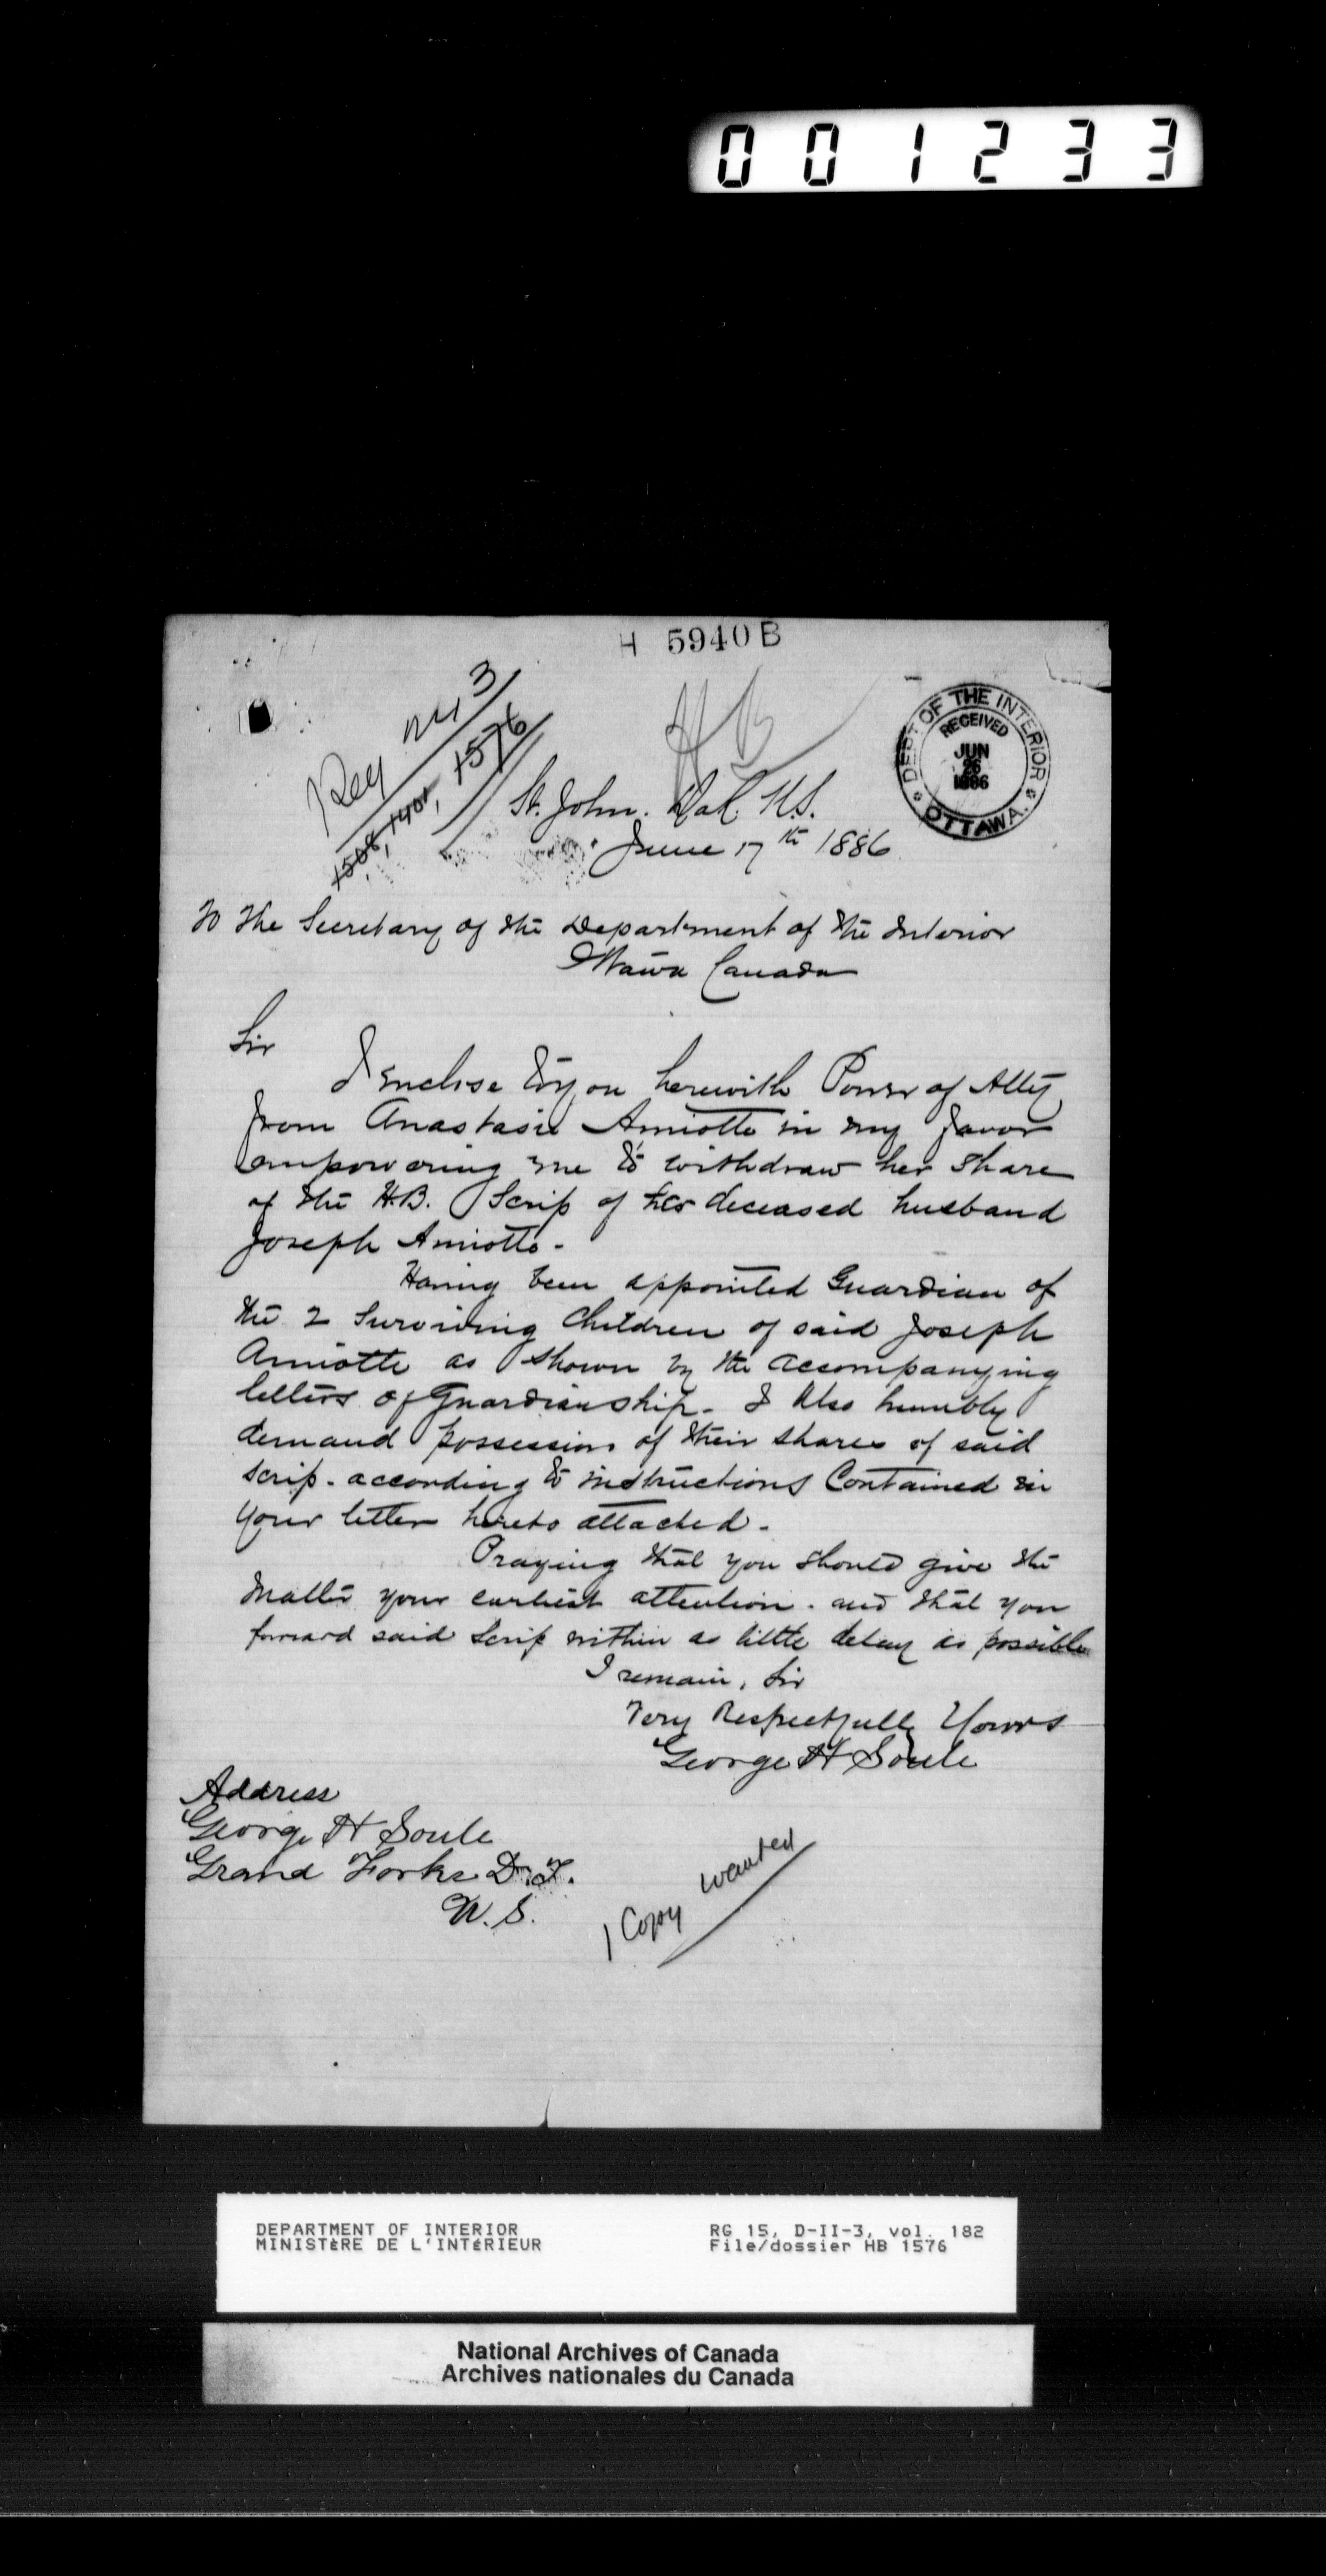 001233
H 5940 B
HB
DEPT OF THE INTERIOR
RECEIVED
JUN
26
1886
OTTAWA.
Reg
1508, 1401, 1576
St. John. Dak. U.S.
June 17th 1886
To The Secretary of the Department of the Interior
Ottawa Canada
Sir
I enclose to you herewith Power of Atty
from Anastasie Amiotte in my favor
empowering me to withdraw her share
of the H.B. Scrip of her deceased husband
Joseph Amiotte -
Having been appointed Guardian of
the 2 Surviving Children of said Joseph
Amiotte as shown by the accompanying
letters of Guardianship - I Also humbly
demand possession of their shares of said
scrip - according to instructions Contained in
your letter hereto attached -
Praying that you should give the
matter your earliest attention - and that you
forward said Scrip within as little delay as possible
I remain, Sir
Very Respectfully Yours
George H Soule
Address
George H Soule
Grand Forks D.T.
U.S.
1 Copy wanted
DEPARTMENT OF INTERIOR
MINISTÈRE DE L'INTÉRIEUR
RG 15, D-II-3, vol. 182
File/dossier HB 1576
National Archives of Canada
Archives nationales du Canada